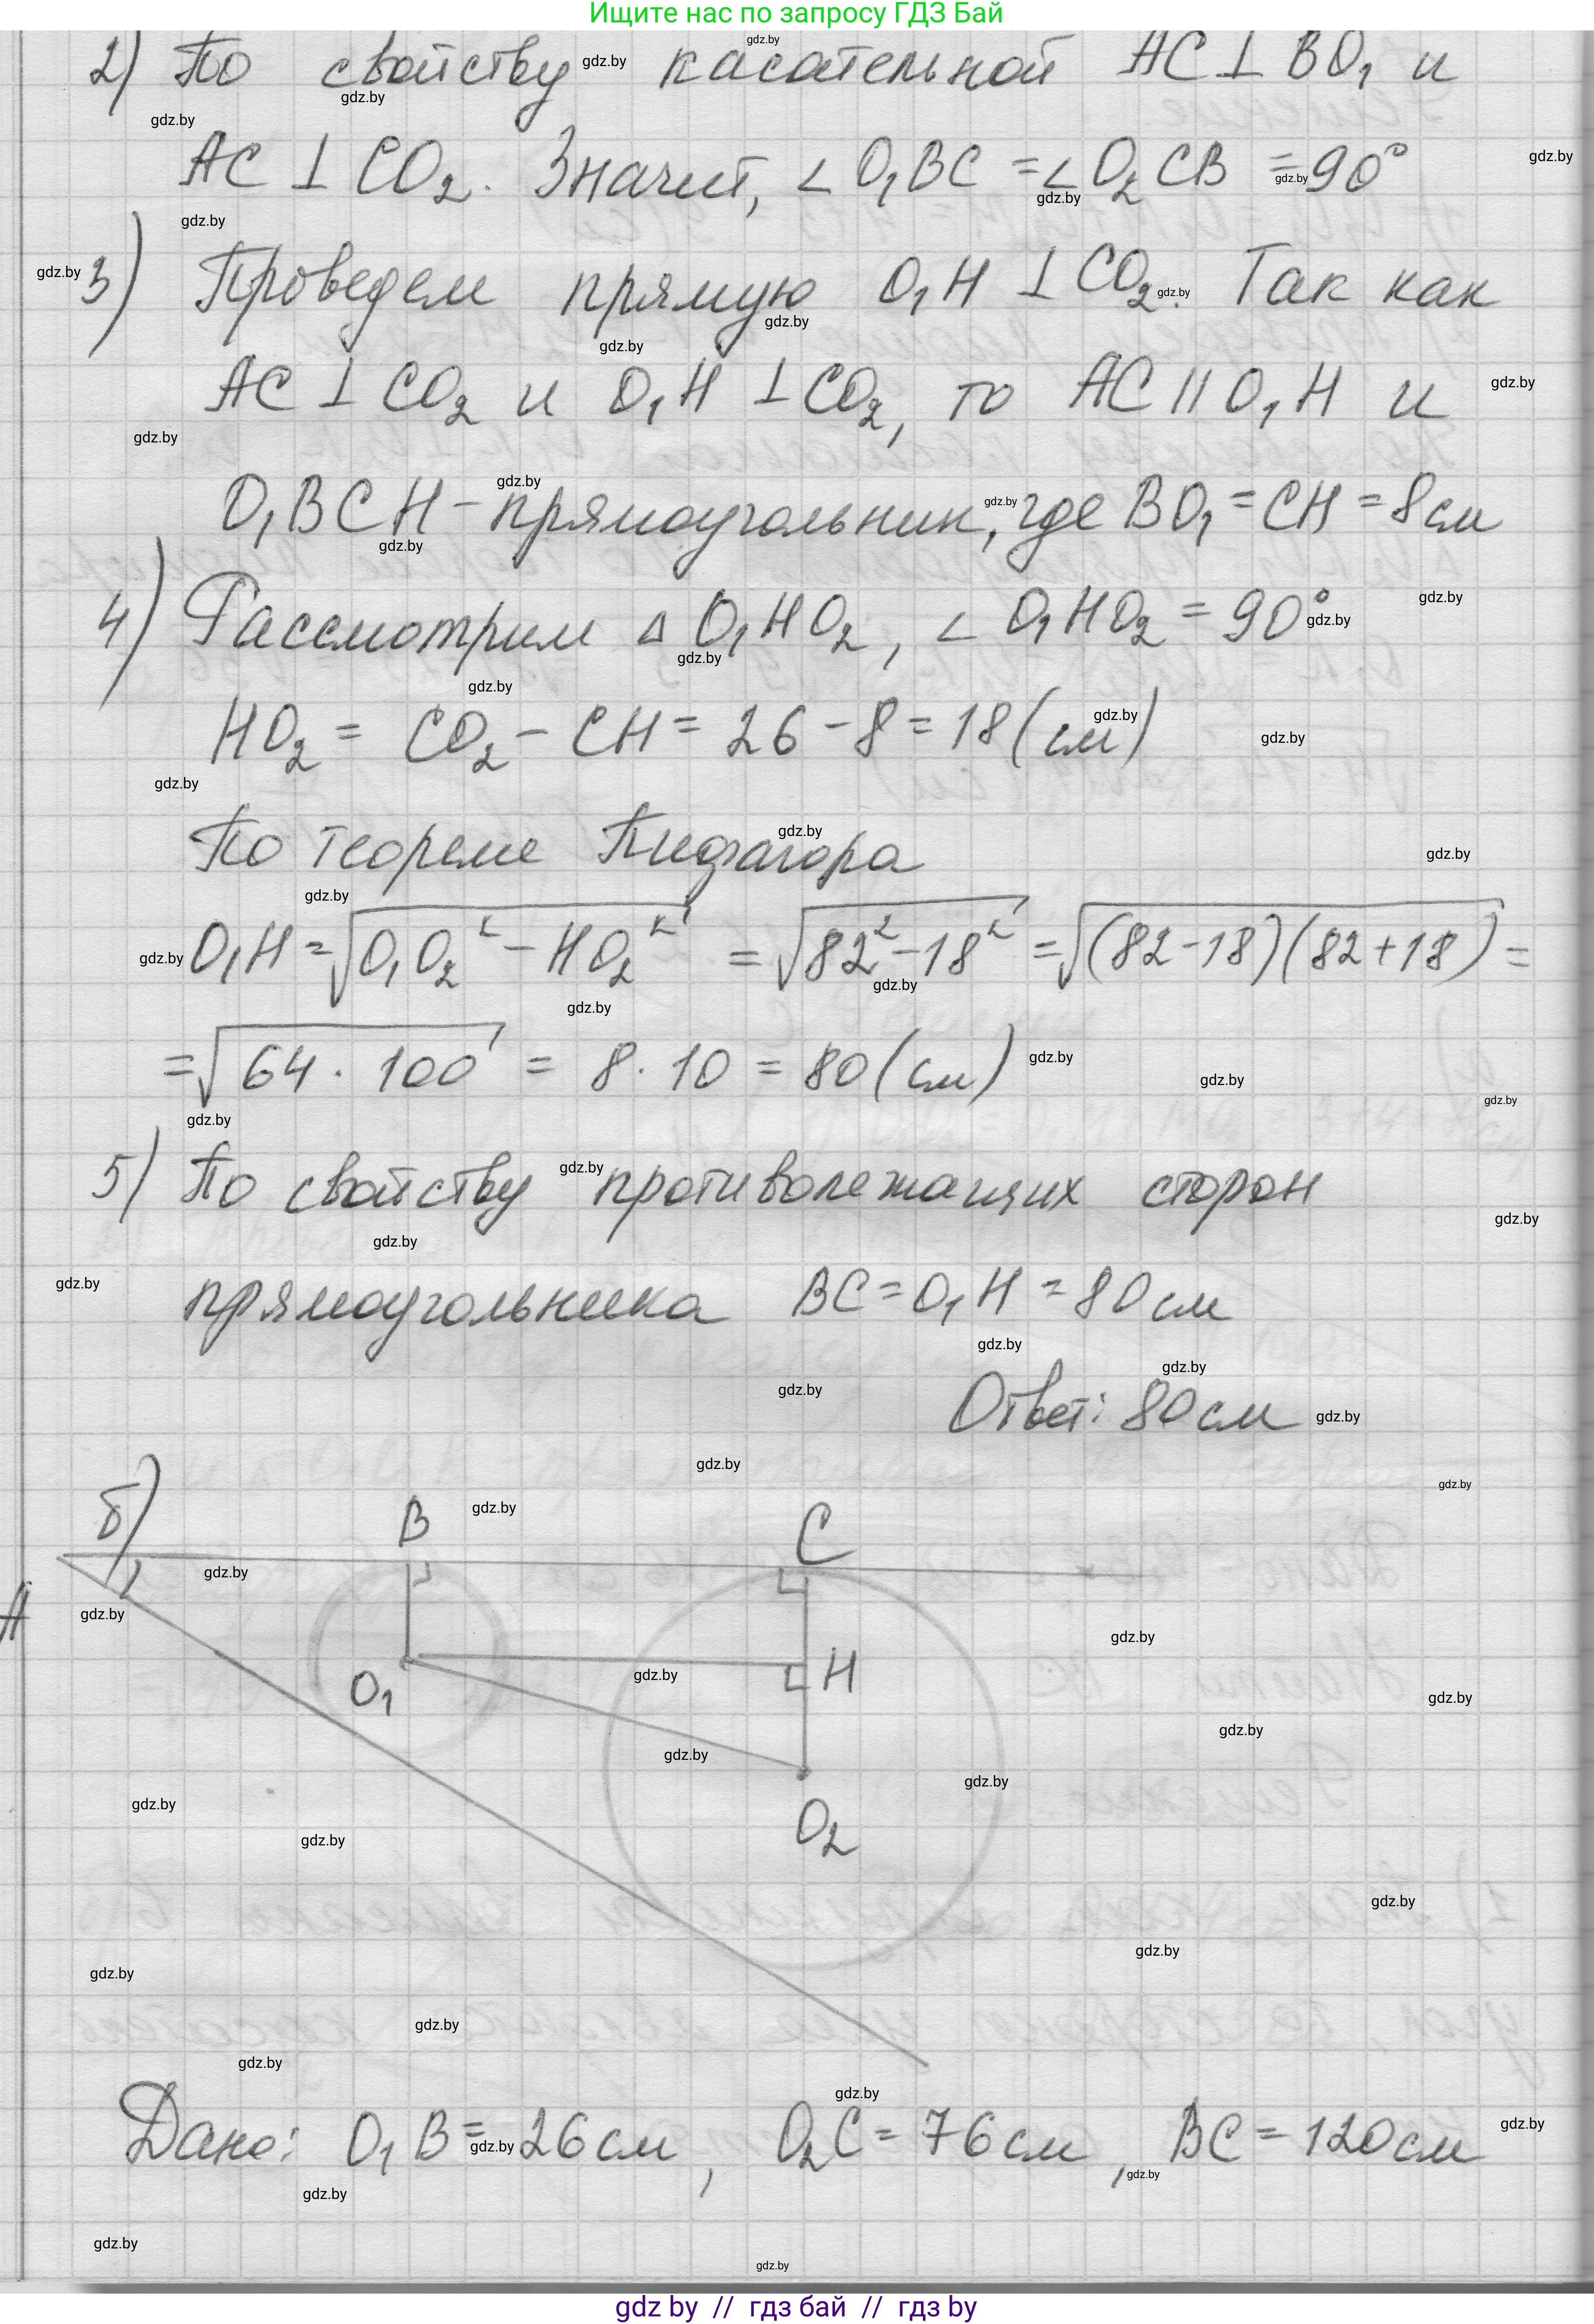 Ищите нас по запросу ГДЗ Бай
2) По свойству касательной AC ⊥ BO₁ и
AC ⊥ CO₂. Значит, ∠O₁BC = ∠O₂CB = 90°
3) Проведем прямую O₁H ⊥ CO₂. Так как
AC ⊥ CO₂ и O₁H ⊥ CO₂, то AC || O₁H и
O₁BCH - прямоугольник, где BO₁ = CH = 8 см
4) Рассмотрим △ O₁HO₂, ∠ O₁HO₂ = 90°
HO₂ = CO₂ - CH = 26 - 8 = 18 (см)
По теореме Пифагора
O₁H = √(O₁O₂² - HO₂²) = √(82² - 18²) = √((82-18)(82+18)) =
= √(64 · 100) = 8 · 10 = 80 (см)
5) По свойству противолежащих сторон
прямоугольника BC = O₁H = 80 см
Ответ: 80 см
б)
B
C
A
O₁
H
O₂
Дано: O₁B = 26 см, O₂C = 76 см, BC = 120 см
gdz by // гдз бай // гдз by